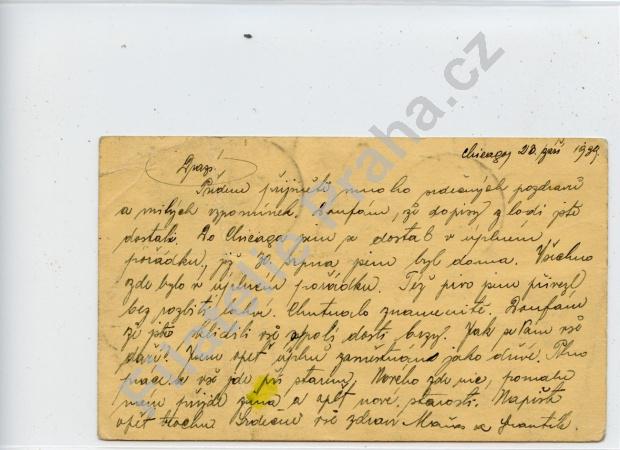 Chicago, 20. září 1939.
Drazí
Předem přijměte mnoho srdečných pozdravů
a milých vzpomínek. Doufám, že dopisy z lodi jste
dostali. Do Chicaga jsem se dostal v úplném
pořádku, již 30. srpna jsem byl doma. Všechno
zde bylo v úplném pořádku. Též pivo jsem přivezl
bez rozbití lahví. Chutnalo znamenitě. Doufám
že jste sklidili vše z polí dosti brzy. Jak se Vám vše
daří? Jsem opět úplně zaměstnán jako dříve.
práce a vše jde při starém. Nového zde nic, pomalu
nám přijde zima a opět nové starosti. Napište
opět trochu. Srdečně vše zdraví Máňa a Frantík.
Filatelie Praha.cz